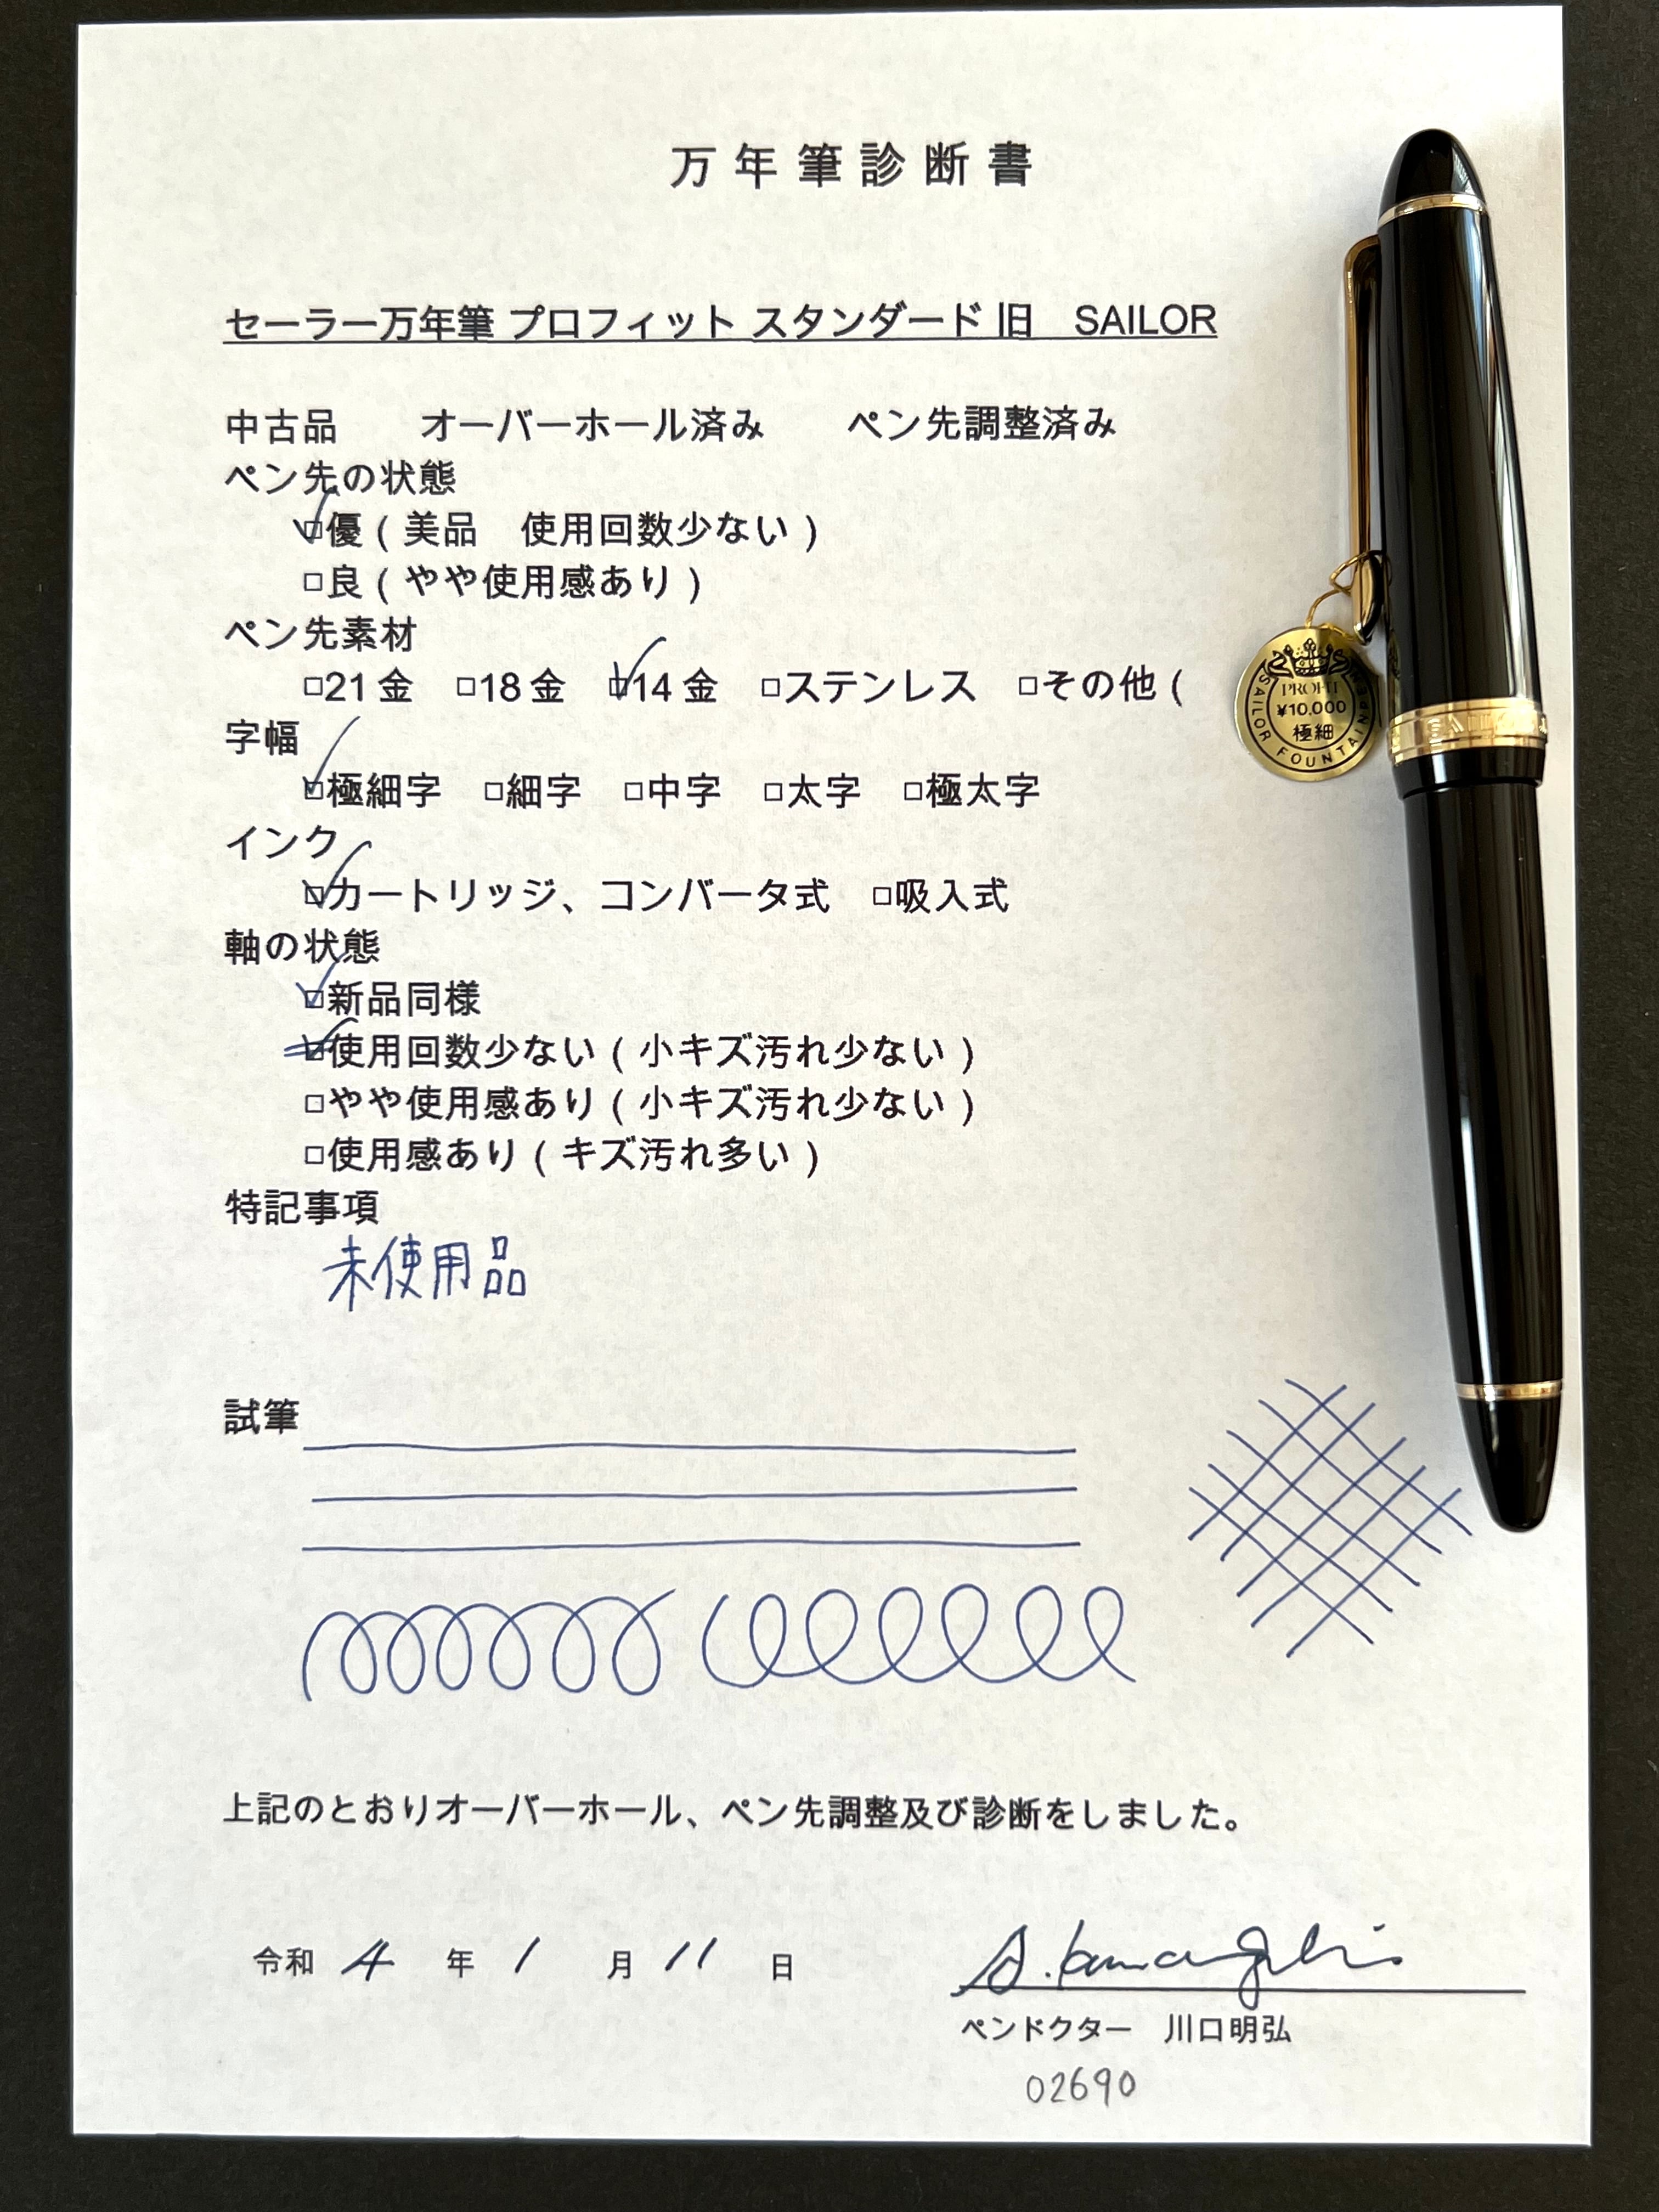 万年筆診断書
セーラー万年筆 プロフィット スタンダード 旧　SAILOR
中古品　　オーバーホール済み　　ペン先調整済み
ペン先の状態
☑優（美品　使用回数少ない）
□良（やや使用感あり）
ペン先素材
□21金　□18金　☑14金　□ステンレス　□その他（
字幅
☑極細字　□細字　□中字　□太字　□極太字
インク
☑カートリッジ、コンバータ式　□吸入式
軸の状態
☑新品同様
☑使用回数少ない（小キズ汚れ少ない）
□やや使用感あり（小キズ汚れ少ない）
□使用感あり（キズ汚れ多い）
特記事項
未使用品
試筆
上記のとおりオーバーホール、ペン先調整及び診断をしました。
令和 4 年 1 月 11 日
ペンドクター　川口明弘
02690
PROFIT
¥10,000
極細
SAILOR FOUNTAINPEN